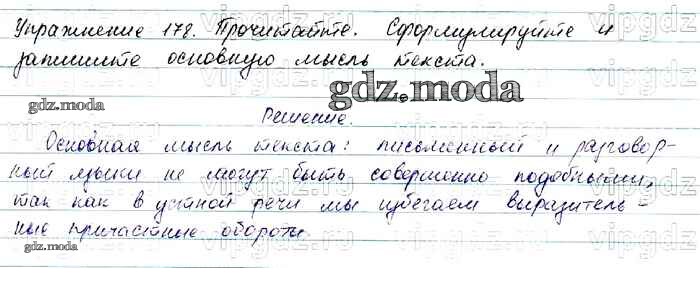 Упражнение 178. Прочитайте. Сформулируйте и
запишите основную мысль текста.
gdz.moda
gdz.moda
Решение.
Основная мысль текста: письменный и разговор-
ный языки не могут быть совершенно подобными,
так как в устной речи мы избегаем выразитель-
ные причастные обороты.
gdz.moda
vipgdz
vipgdz
vipgdz
vipgdz
vipgdz